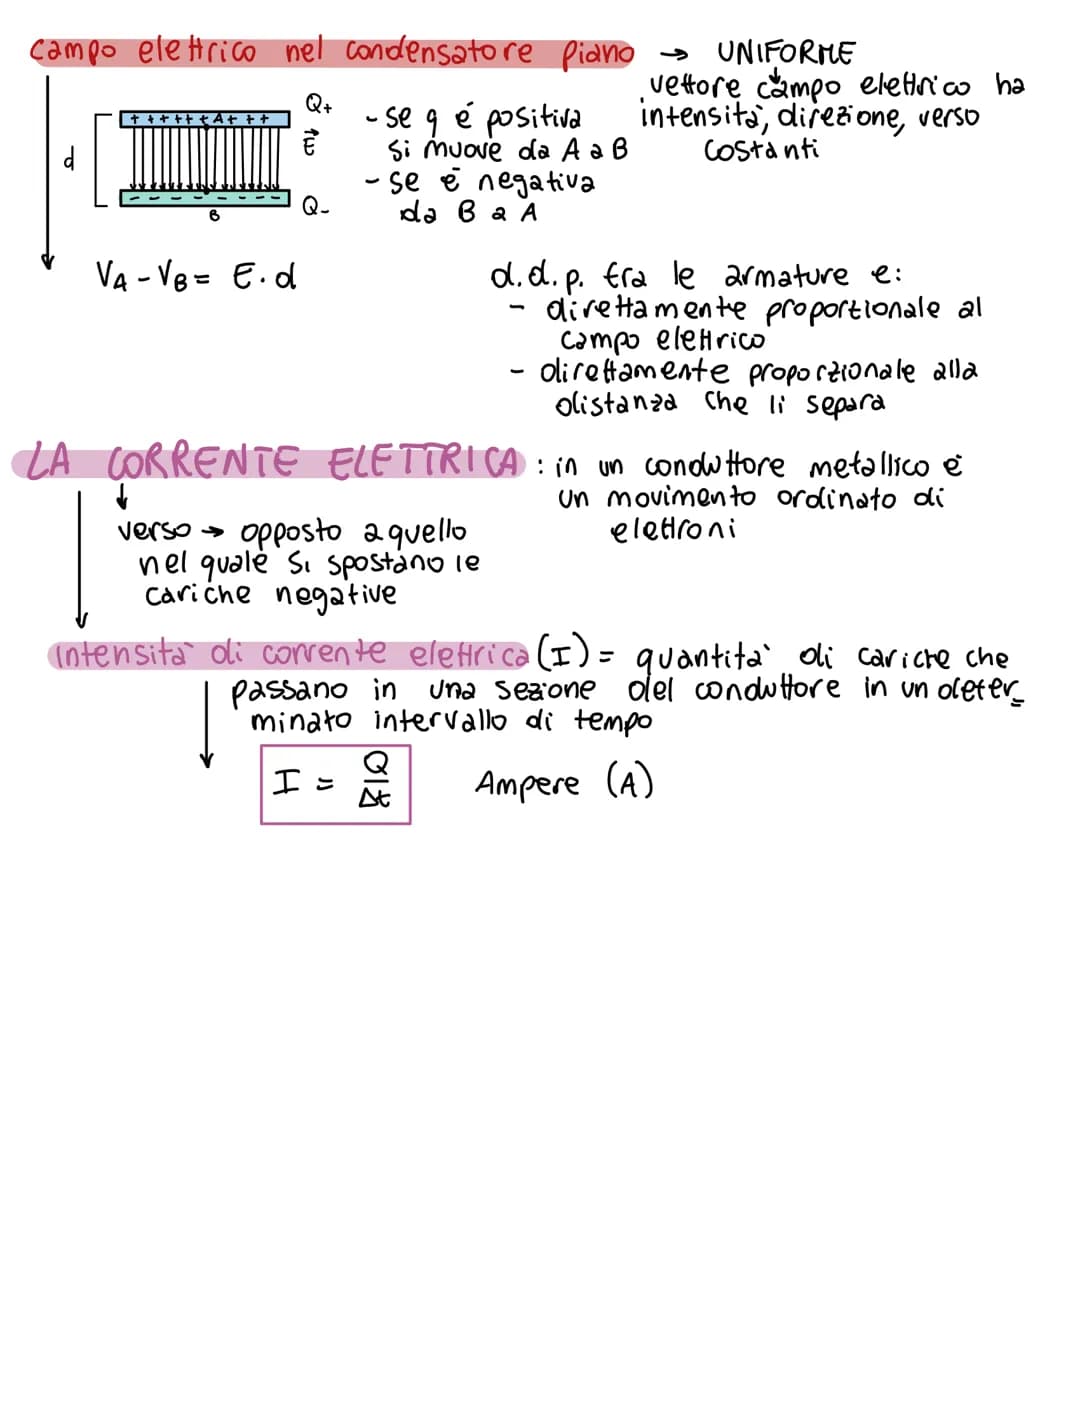 campo elettrico nel condensatore piano → UNIFORME
vettore campo elettrico ha
intensità, direzione, verso
costanti
+ + + + + + A + + +
Q+
E
d
B
Q-
- se q é positiva
si muove da A a B
- se é negativa
da B a A
VA - VB = E · d
d.d.p. tra le armature e:
- direttamente proportionale al
campo elettrico
- direttamente proporzionale alla
distanza che li separa
LA CORRENTE ELETTRICA : in un conduttore metallico é
un movimento ordinato di
elettroni
verso → opposto a quello
nel quale si spostano le
cariche negative
intensità di corrente elettrica (I) = quantità di cariche che
passano in una sezione del conduttore in un deter_
minato intervallo di tempo
I = Q/Δt Ampere (A)